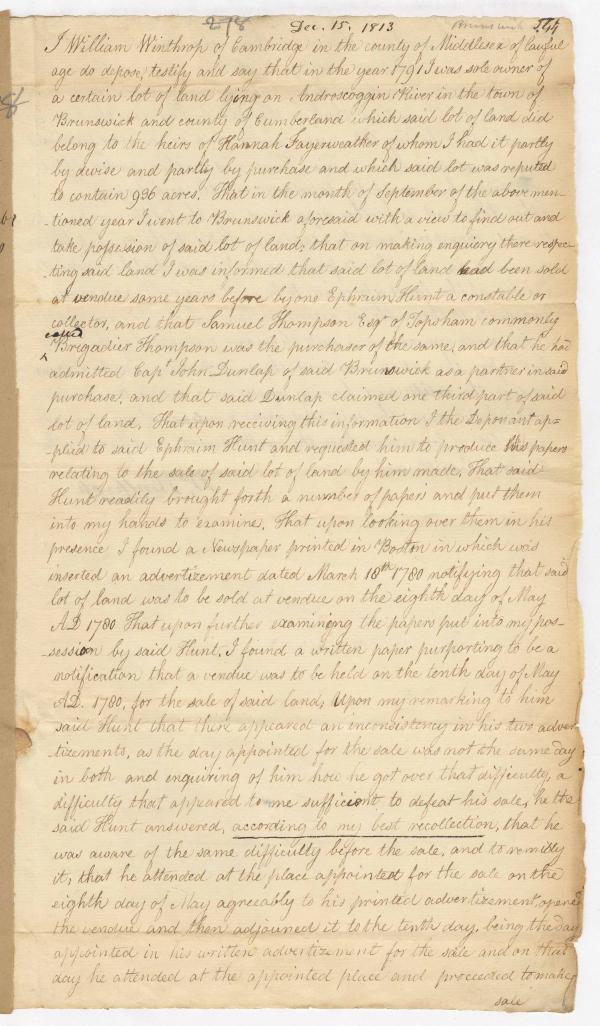 278 Dec. 15, 1813 Brunswick 544
I William Winthrop of Cambridge in the county of Middlesex of lawful
age do depose, testify and say that in the year 1791 I was sole owner of
a certain lot of land lying on Androscoggin River in the town of
Brunswick and county of Cumberland which said lot of land did
belong to the heirs of Hannah Fayerweather of whom I had it partly
by devise and partly by purchase and which said lot was reputed
to contain 936 acres. That in the month of September of the abovemen-
-tioned year I went to Brunswick aforesaid with a view to find out and
take possession of said lot of land: that on making enquiery there respec-
-ting said land I was informed that said lot of land had been sold
at vendue some years before by one Ephraim Hunt a constable or
collector, and that Samuel Thompson Esqr of Topsham commonly
called
Brigadier Thompson was the purchaser of the same, and that he had
admitted Capt John Dunlap of said Brunswick as a partner in said
purchase, and that said Dunlap claimed one third part of said
lot of land. That upon receiving this information I the Deponant ap=
plied to said Ephraim Hunt and requested him to produce his papers
relating to the sale of said lot of land by him made. That said
Hunt readily brought forth a number of papers and put them
into my hands to examine. That upon looking over them in his
presence I found a Newspaper printed in Boston in which was
inserted an advertizement dated March 18th 1780 notifying that said
lot of land was to be sold at vendue on the eighth day of May
AD 1780 That upon further examining the papers put into my pos-
-session by said Hunt, I found a written paper purporting to be a
notification that a vendue was to be held on the tenth day of May
AD. 1780, for the sale of said land; Upon my remarking to him
said Hunt that there appeared an inconsistency in his two adver
tizements, as the day appointed for the sale was not the same day
in both and enquiring of him how he got over that difficulty, a
difficulty that appeared to me sufficient to defeat his sale, he the
said Hunt answered, according to my best recollection, that he
was aware of the same difficulty before the sale, and to remidy
it, that he attended at the place appointed for the sale on the
eighth day of May agreeably to his printed advertizement, opened
the vendue and then adjouined it to the tenth day, being the day
appointed in his written advertizement for the sale and on that
day he attended at the appointed place and proceeded to make
sale